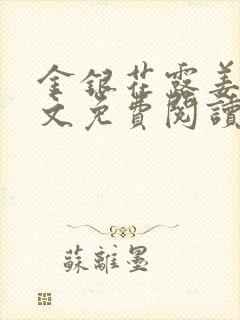 金銀花露姜
文免費閱讀
蘇離墨